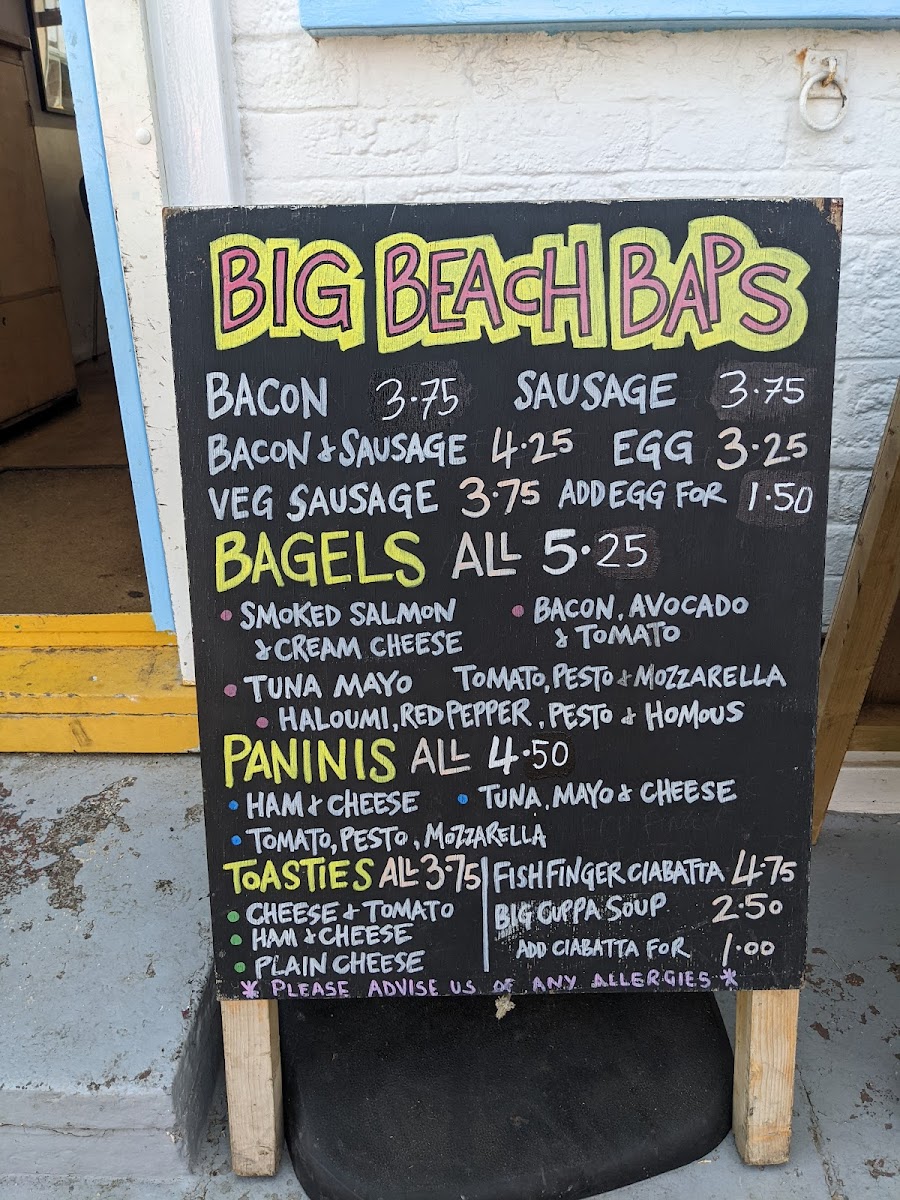 BIG BEACH BAPS
BACON 3.75 SAUSAGE 3.75
BACON & SAUSAGE 4.25 EGG 3.25
VEG SAUSAGE 3.75 ADD EGG FOR 1.50
BAGELS ALL 5.25
• SMOKED SALMON & CREAM CHEESE
• BACON, AVOCADO & TOMATO
• TUNA MAYO TOMATO, PESTO & MOZZARELLA
• HALOUMI, RED PEPPER, PESTO & HOMOUS
PANINIS ALL 4.50
• HAM & CHEESE • TUNA, MAYO & CHEESE
• TOMATO, PESTO, MOZZARELLA
TOASTIES ALL 3.75
• CHEESE & TOMATO
• HAM & CHEESE
• PLAIN CHEESE
FISH FINGER CIABATTA 4.75
BIG CUPPA SOUP 2.50
ADD CIABATTA FOR 1.00
* PLEASE ADVISE US OF ANY ALLERGIES *